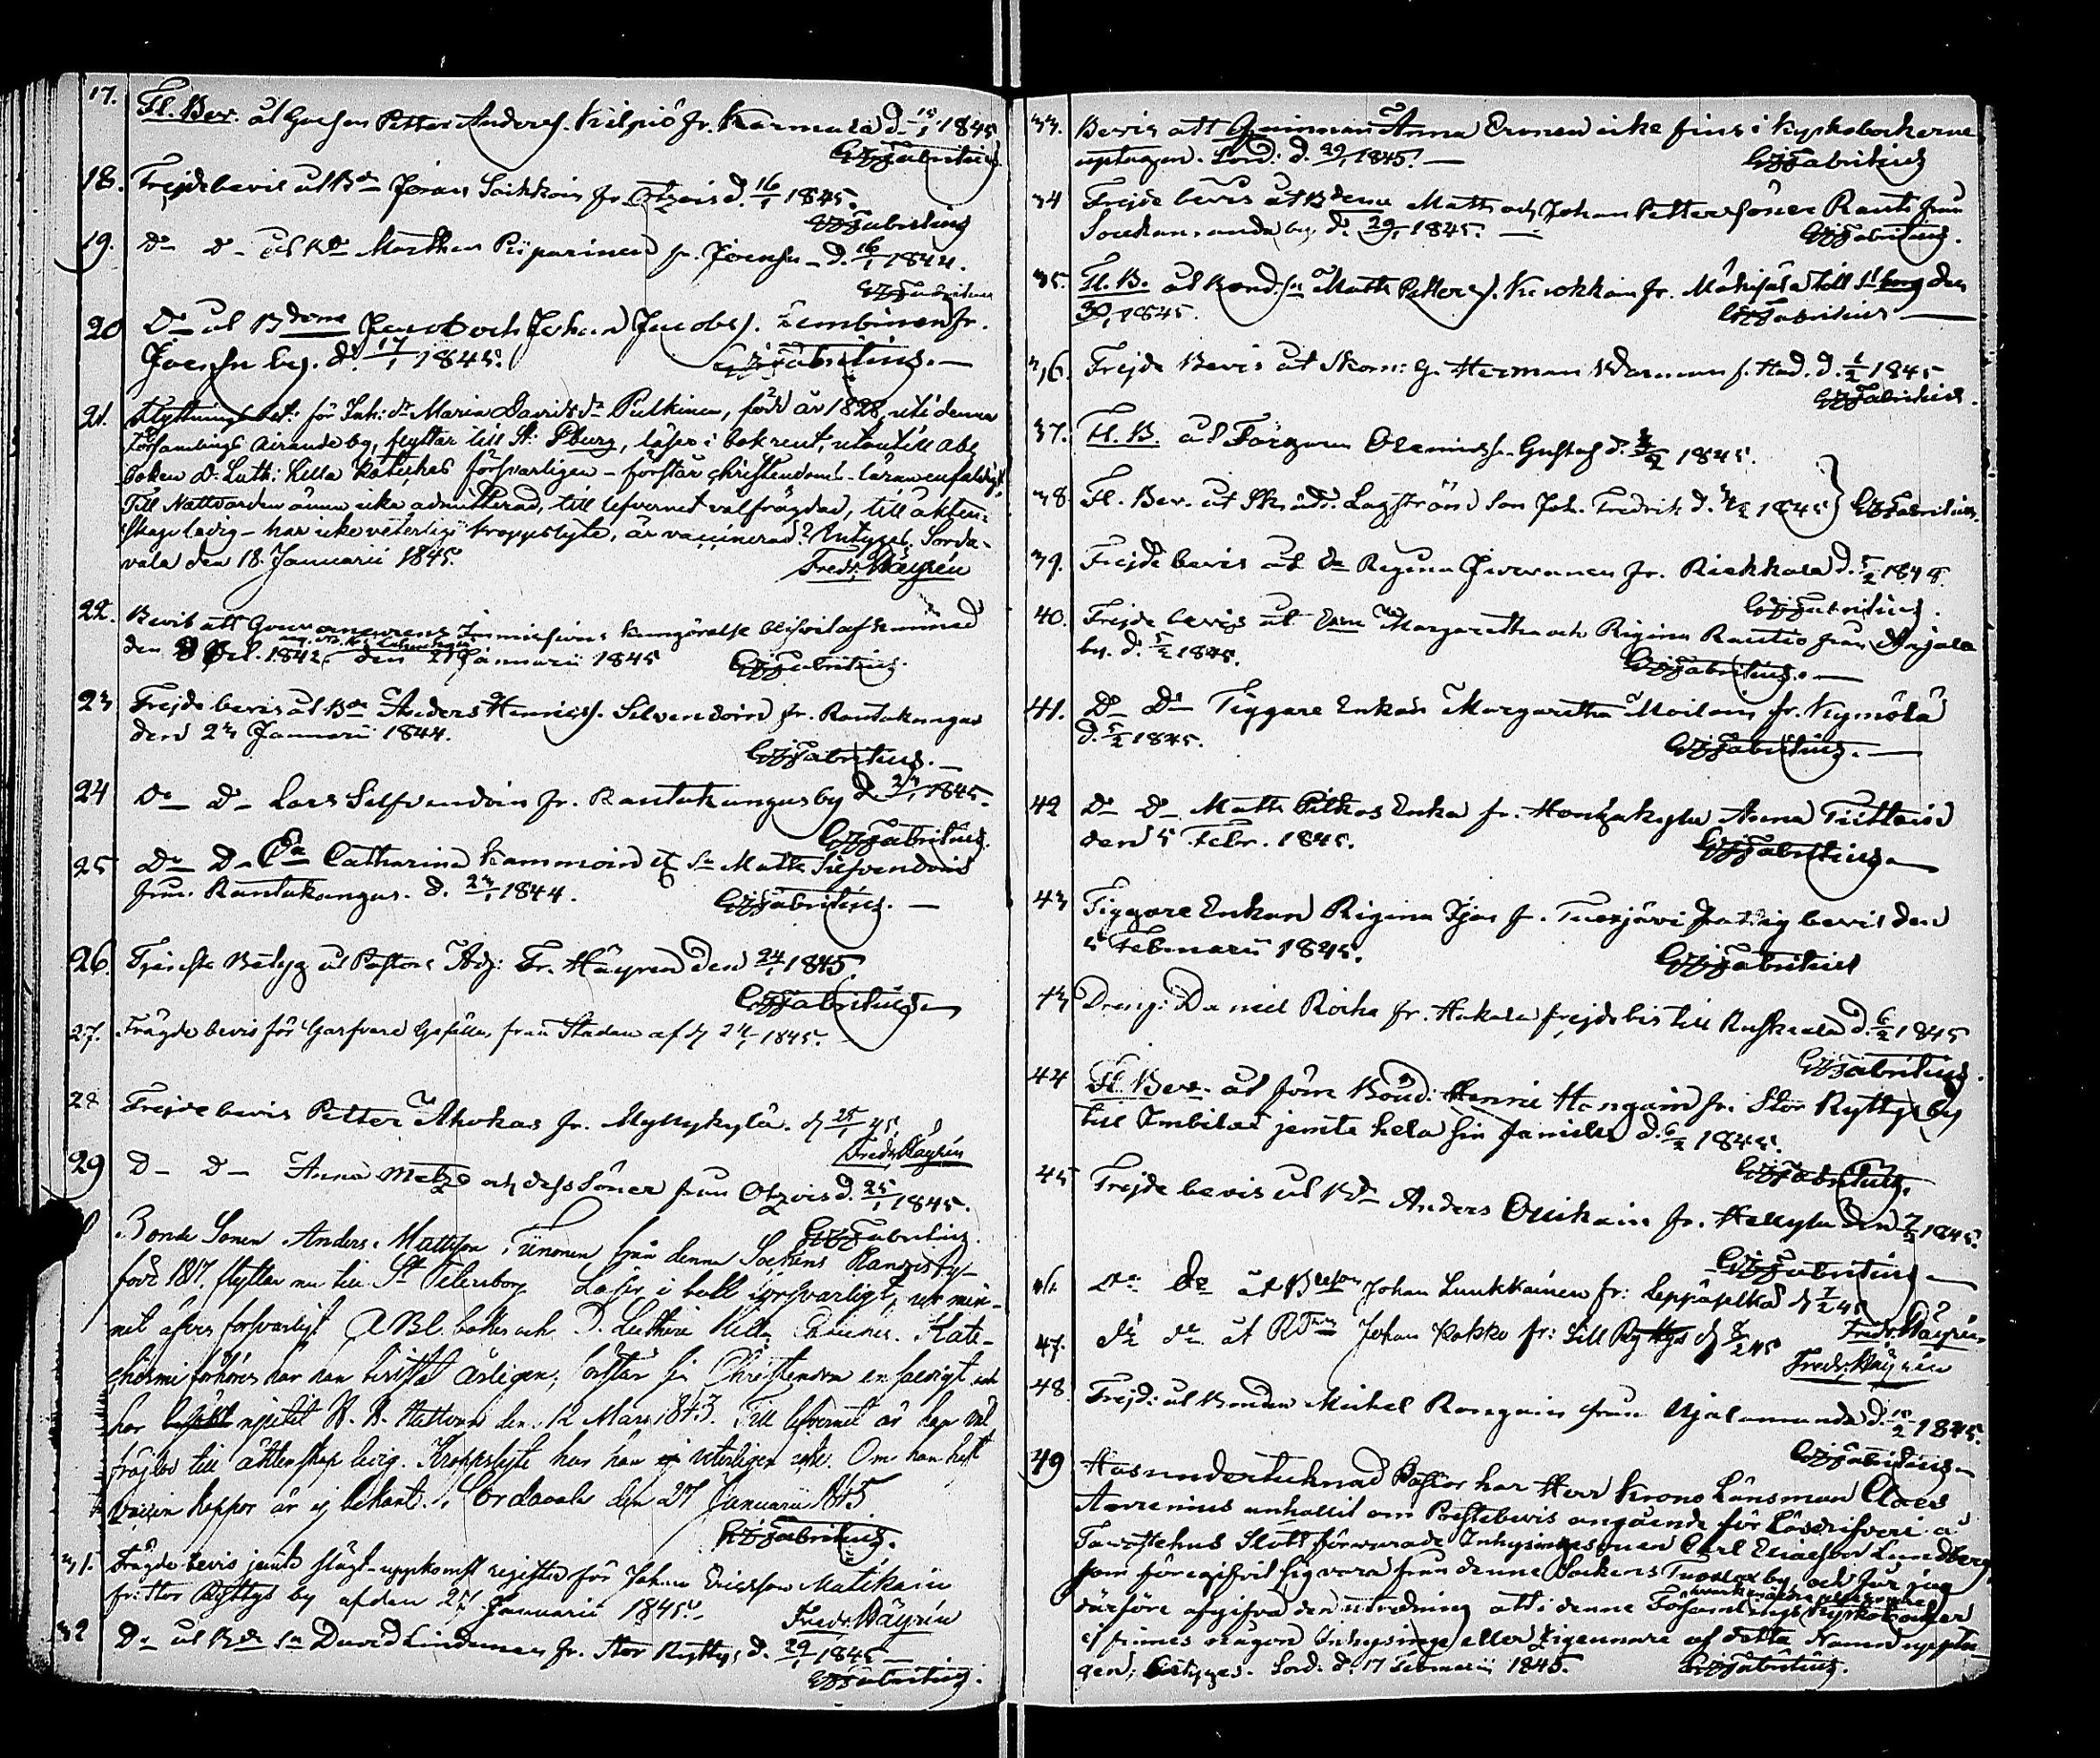 17. Fl. Bev. åt Gossen Petter Anderss. Kilpiö fr. Karmala d. 15/1 1845
GGFabritius
18. Frejdebevis åt Bdn Jöran Saikkoin fr. Otzois d. 16/1 1845.
GGFabritius
19. Do Do åt Bdn Matthes Piiparinen fr. Joensu d. 16/1 1844.
GGFabritius
20 Do åt Bdrne Jacob och Johan Jacobss. Lembinen fr.
Joensu by. d. 17/1 1845.
GGFabritius.
21. Flyttningsbet: för Inh: dr Maria Davidsdr Pulkinen, född år 1828, uti denna
Församlings Airanne by, flyttar till St: Pburg, läser i bok rent, utantill abc
boken Dr. Luth. Lilla Katekes försvarligen – förstår christendoms-läran enfaldigt,
Till Nattvarden ännu icke admitterad, till lefvernet välfrägdad, till äkten-
skap ledig – har icke veterligt kroppslyte, är vaccinerad? Intygas. Sorda-
vala den 18. Januarii 1845.
Fredr. Häyrén
22. Bevis att Gouverneurens Permissions kungörelse blifvit afkunnad
den Oct. 1842, den 21 Januarii 1845 GGFabritius.
23 Frejdebevis åt Bdn Anders Henricss. Selvendoin fr. Rantakangas
den 23 Januarii 1844.
GGFabritius.
24 Do Do Lars Selfvendoin fr. Rantakangas by d. 23/1 1845.
GGFabritius.
25 Do Do Catharina Kammoin et Sn Matts Silfvendoin
från Rantakangas. d. 23/1 1844. GGFabritius.
26 Tjenste Betyg åt Pastors Adj: Fr. Häyrén den 24/1 1845.
GGFabritius
27. Frägdebevis för Garfvare Gesällen från Staden af d 24/1 1845.
28 Frejdebevis Petter Ahokas fr. Myllykylä. d 25/1 45.
Fredr. Häyrén
29 Do Do Anna Metzo och dess Söner från Otzois d. 25/1 1845.
GGFabritius.
Bonde Sonen Anders Mattsson Tiinonen från denna Sockens
född 1817. flyttar nu till St Petersborg Läser i bok försvarligt, ur min-
net äfven försvarligt ABC boken och D. Lutheri Lilla Kate-
chismi förhören har han bivistat årligen; förstår sin Christendom enfaldigt och
har njutit H. H. Nattvard den 12 Mars 1843. Till lefvernet är han väl
frägdad till äktenskap ledig. Kroppslyte har han ej veterligen Om han haft
vaccin koppor är ej bekant. Sordavala den 27 Januarii 1845
GGFabritius.
31. Frägdebevis jemte slägt-uppkomst register för Johan Ericsson Matikain
fr. Stor Ryttys by af den 27 Januarii 1845.
Fredr. Häyrén
32 Do åt Bde Sn David Lindunen fr. Stor Ryttys d. 29/1 1845
GGFabritius.
33. Bevis att Qvinnan Anna Eronen icke fins i kyrkoböckerne
upptagen. Sord: d. 29/1 1845. GGFabritius
34 Frejdebevis åt Bderne Matts och Johan Petterssöner Rants från
by d. 29/1 1845. GGFabritius.
35. Fl. B. åt Bond.sn Matts Petterss. Kuokkain fr. Mäkisalo till St borg den
30/1 1845. GGFabritius
36. Frejde Bevis åt Skom: G. Herman Warman f. Stad. d. 1/2 1845
GGFabritius.
37. Fl. B. åt Färgaren Oleniuss. Gustaf d. 3/2 1845.
38 Fl. Bev. åt Skrädd. Lagström Son Joh. Fredrik d. 3/2 1845 GGFabritius.
39. Frejdebevis åt Regina Iivvonen fr. Riekkala d. 5/2 1845.
GGFabritius.
40. Frejde bevis åt Margaretha och Regina Rautio från Anjala
by. d. 5/2 1845.
GGFabritius.
41. Do Do Tiggare Enkan Margaretha Moilain fr. Kymölä
d. 5/2 1845.
GGFabritius.
42 Do Do Matts Pitkos Enka fr. Honkakylä Anna Tiittain
den 5 Febr. 1845.
GGFabritius
43 Tiggare Enkan Regina Ijas fr. Tuoxjärvi fattig bevis den
5 Februarii 1845.
GGFabritius
43 Dreng: Daniel Roiha fr. Hakala frejdebev. till Ruskeala d. 6/2 1845
GGFabritius.
44 Fl. Bev. åt förre Bond. Henric Hongain fr. Stor Ryttys by
till Imbilax jemte hela sin familie d. 6/2 1845.
GGFabritius.
45 Frejde bevis åt Bdn Anders Ovikain fr. Helylä den 7/2 1845.
GGFabritius
46. Do Do åt Bdeson Johan Luukkainen fr: Leppäselkä d 7/2 45
Fredr. Häyrén
47. Do do åt Johan Kokko fr: Lill Ryttys d 8/2 45
Fredr. Häyrén
48 Frejd: åt Bonden Michel Rongain från d. 10/2 1845.
GGFabritius
49 Hos undertecknad Pastor har Herr Krono Länsman Claes
Arrenius anhållit om Prestebevis angående för Lösdrifveri å
Tawastehus Slott förvarade Inhysingesonen Carl Eliaeson Lundberg,
som föregifvit sig vara från denne Sockens Tuoxlax by, och får jag
därföre afgifva den utredning att i denne Församlings Kyrkoböcker
ej finnes någon Inhysinge eller Zigeunare af detta Namn uppta-
gen; betygas. Sord. d. 17 Februarii 1845. GGFabritius.